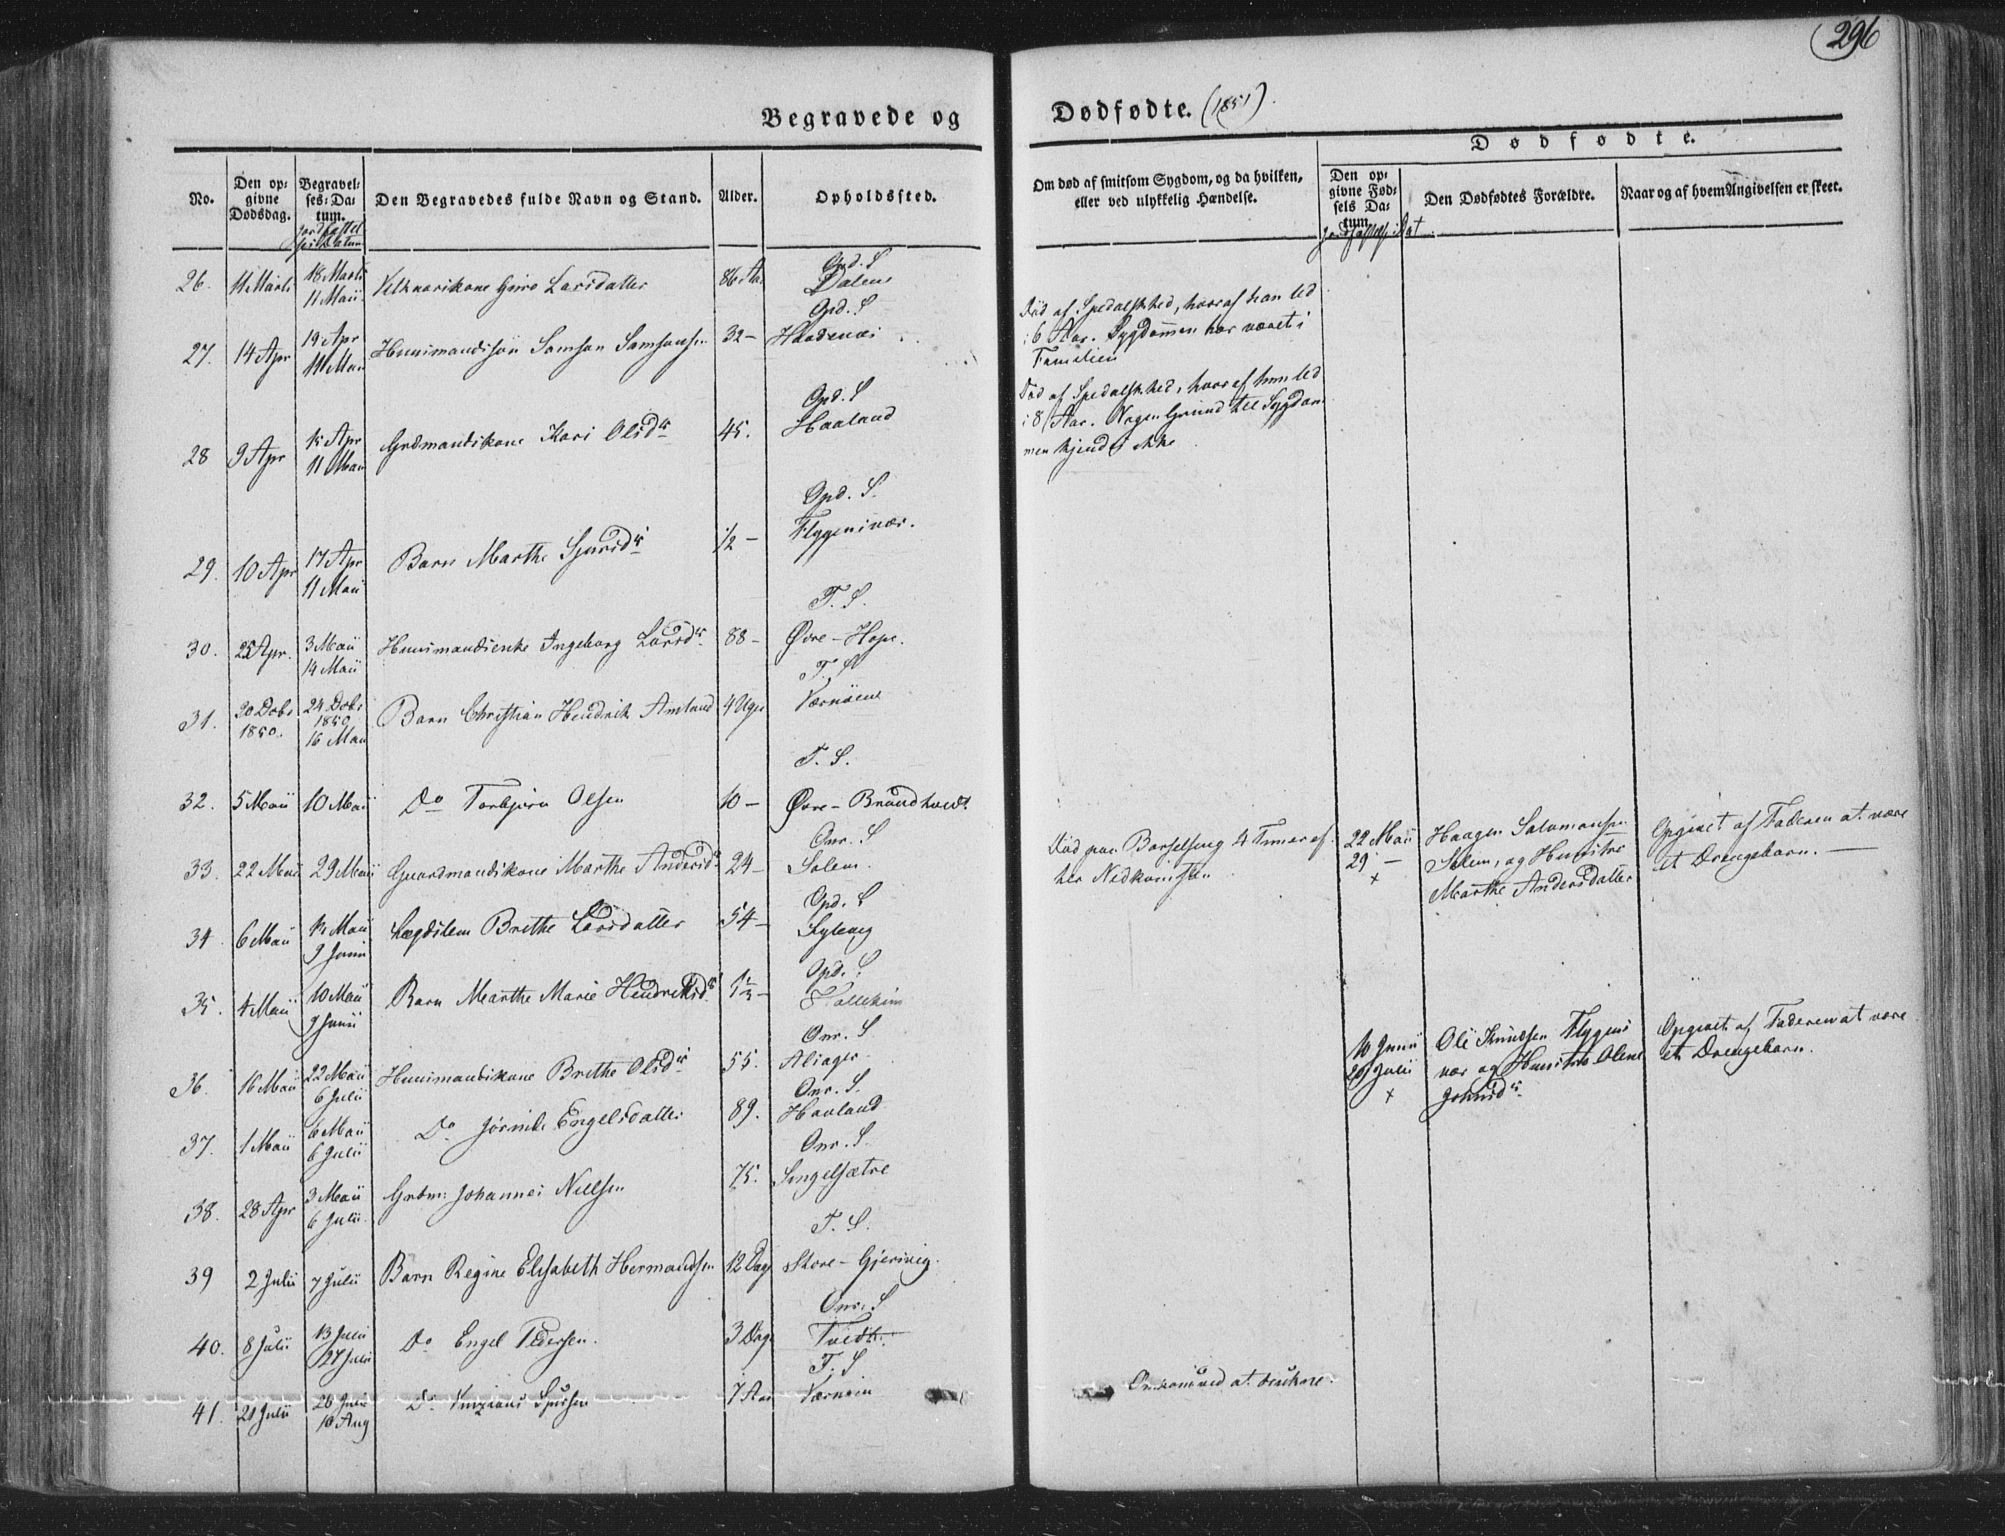 296
Begravede og Dødfødte. (1851)
Dødfødte.
No.
Den opgivne Dødsdag.
Begravelses-Datum.
Den Begravedes fulde Navn og Stand.
Alder.
Opholdssted.
Om død af smitsom Sygdom, og da hvilken, eller ved ulykkelig Hændelse.
Den opgivne Fødsels Datum.
Den Dødfødtes Forældre.
Naar og af hvem Angivelsen er skeet.
26. 11 Marts 18 Marts 11 Maii Larsdatter 86 Aar Opd. S Dalen
27. 14 Apr 19 Apr 11 Maii Huusmandssøn Samson Samsonsen 32 - Opd. S
Død af Spedalskhed, hvoraf han led
i 6 Aar. Sygdommen har været i
Familien
28 9 Apr 15 Apr 11 Maii Grdmandskone Kari Olsdr 45. Opd. S Haaland
Død af Spedalskhed, hvoraf hun led
i 8 Aar. Nogen Grund til Sygdom
men kjendes ikke
29. 10 Apr 17 Apr 11 Maii Barn Marthe Sjursdr 1/2 - Opd. S. Flygensvær.
30. 25 Apr. 3 Maii 14 Maii Huusmandsenke Ingeborg Larsdr 88 - T. S. Øvre-Hope.
31. 20 Dcbr 1850. 24 Dcbr 1850 16 Maii Barn Christian Hendrik Amland 4 Uger T. S Værnøen
32. 5 Maii 10 Maii Do Torbjørn Olsen 10 - T. S. Øvre-Brandtvedt
33. 22 Maii 29 Maii Gaardmandskone Marthe Andersdr 24 - Onr. S Solem.
Død paa Barselseng 4 Timer ef-
ter Nedkomsten
22 Maii 29 - +
Haagen Salamonsen
Solem, og Hustroe
Marthe Andersdatter
Opgivet af Faderen at være
et Drengebarn. -
34 6 Maii 15 Maii 9 Junii Lægdslem Brithe Larsdatter 54 - Opd. S
35. 4 Maii 10 Maii 9 Junii Barn Marthe Marie Hendriksdr 1 1/2 - Opd. S
36. 16 Maii 22 Maii 6 Julii Huusmandskone Brithe Olsdr 55. Onr. S Alsager
10 Junii 20 Julii +
Ole Knudsen Flygens
vær og Hustroe Olene
Opgivet af Faderen at være
et Drengebarn.
37. 1 Maii 6 Maii 6 Julii Do Engelsdatter 89. Onr. S. Haaland
38. 28 Apr 3 Maii 6 Julii Grdm: Johannes Nielsen 75. Onr. S. Singelsætre
39 2 Julii 7 Julii Barn Regine Elisabeth Hermandsen 12 Dag T. S. Store-Gjerivig.
40. 8 Julii 13 Julii 27 Julii Do Engel Pedersen. 3 Dage Onr. S Tvedt.
41. 21 Julii 26 Julii 10 Aug Do Sjursen 7 Aar T. S Værnøen
Omkom ved at drukne.